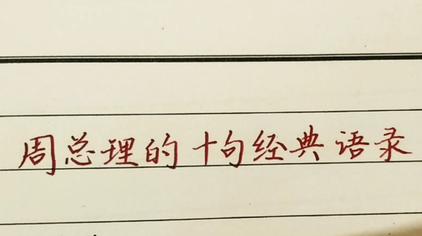 周总理的十句经典语录